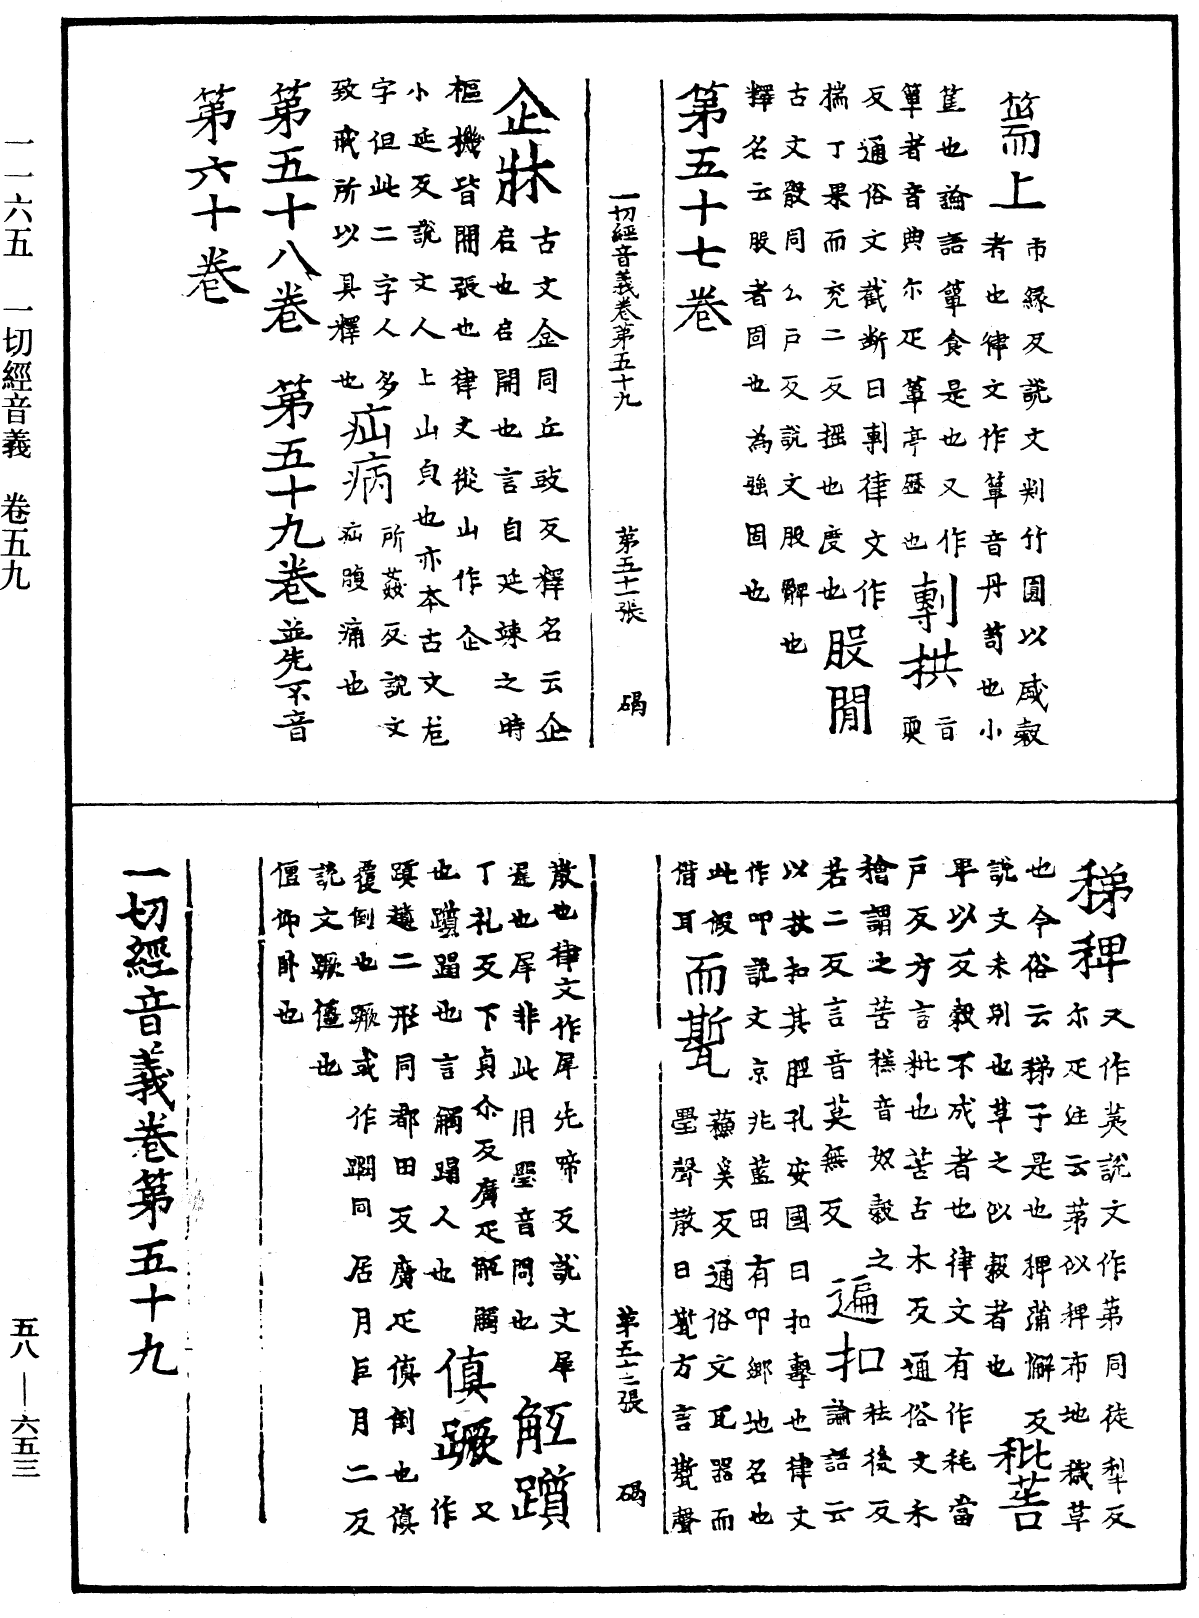 一一六五　一切經音義　卷五九
五八——六五三
䇠上市緣反說文判竹圓以盛穀
者也律文作簞音丹笥也小
筐也論語簞食是也又作
簞者音典尔疋葶亭歷也
剸拱
反通俗文截断曰剸律文作
揣丁果而兖二反揺也度也
股間
古文骰同公戸反說文股髀也
釋名云股者固也為強固也
第五十七卷
一切經音義卷第五十九　第五十一張　碣
企牀古文𠈮同丘豉反釋名云企
启也启開也言自延竦之時
樞機皆開張也律文從山作企
小延反說文人上山皃也亦夲古文
字但此二字人多
致惑所以具釋也
疝病所姦反說文
疝腹痛也
第五十八卷　第五十九卷並先不音
第六十卷
稊稗又作荑說文作苐同徒犁反
尔疋注云苐似稗布地穢草
也今俗云稊子是也稗蒲懈反
說文禾別也草之似穀者也
秕𦯧
卑以反穀不成者也律文有作秏當
戸反方言秕也苦古木反通俗文禾
穭謂之苦𥢶音奴穀之
若二反言音莫無反
遍扣祛後反
論語云
以杖扣其脛孔安國曰扣擊也律文
作叩說文京兆藍田有叩鄉地名也
此假
借耳
而㽄蘓奚反通俗文瓦器而
璺聲散曰㽄方言㽄聲
第五十二張　碣
散也律文作犀先啼反說文犀
遅也犀非此用璺音問也
觝蹟
丁礼反下貞尒反廣疋觝觸
也蹟蹋也言觸蹋人也
傎蹶又作
蹎趈二形同都田反廣疋傎倒也傎
覆倒也蹶或作𨇮同居月巨月二反
說文蹶僵也
僵仰卧也
一切經音義卷第五十九